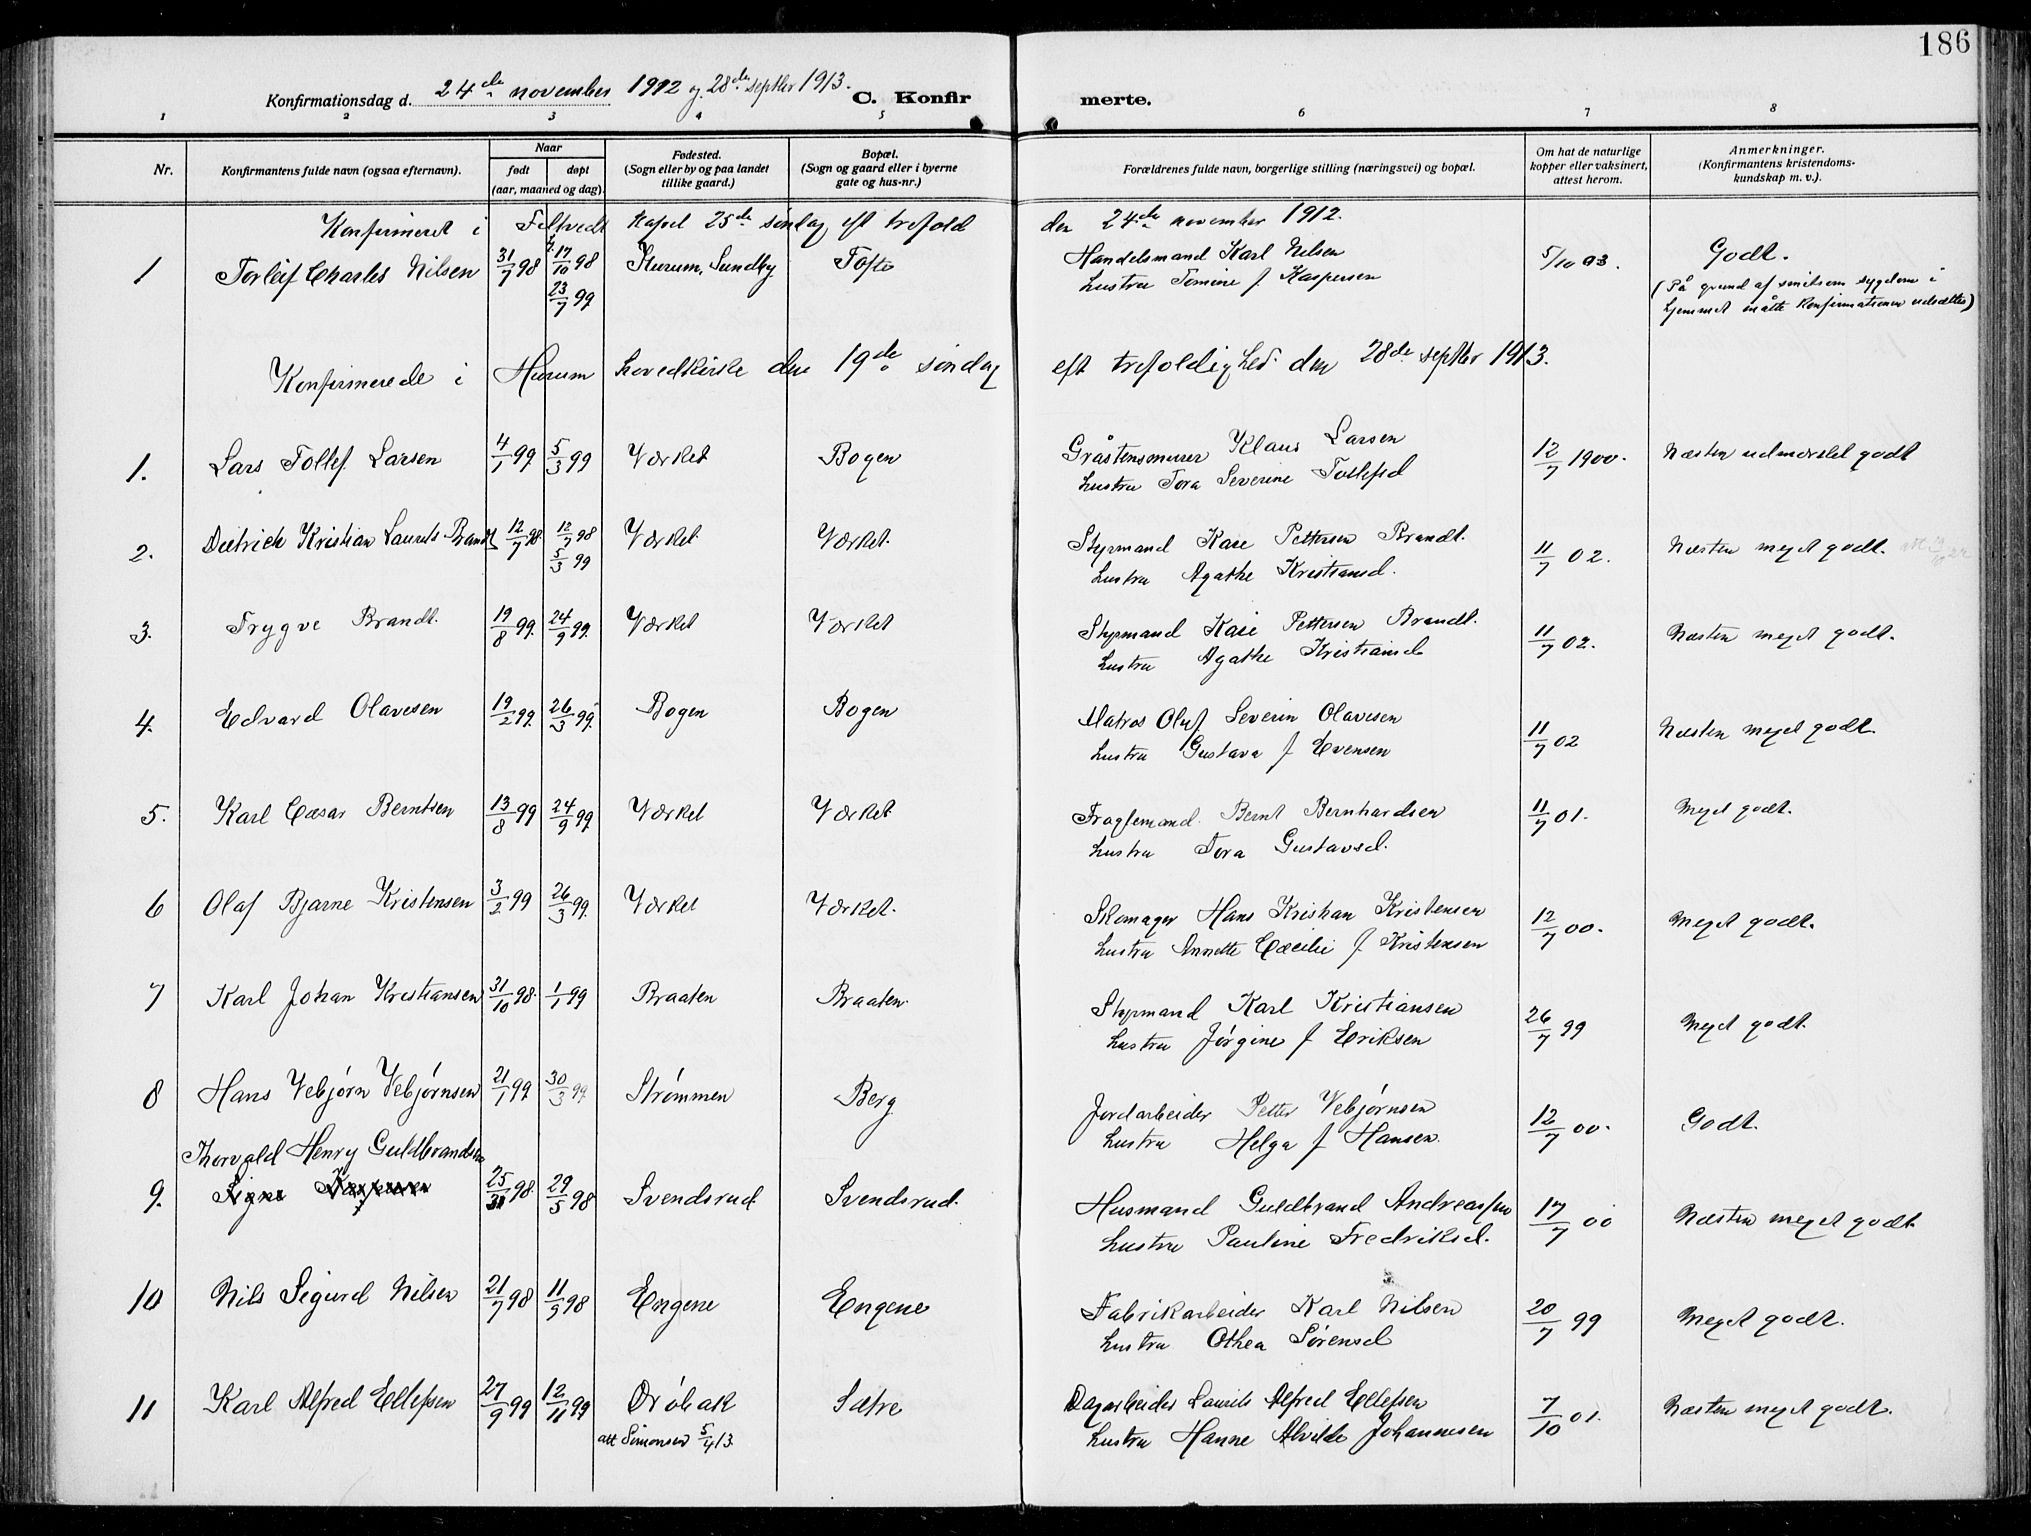 186
Konfirmationsdag d. 24de november 1912 og 28de septbr 1913.
C. Konfirmerte.
1 2 3 4 5 6 7 8
Nr.
Konfirmantens fulde navn (ogsaa efternavn).
Naar
født døpt
(aar, maaned og dag).
Fødested.
(Sogn eller by og paa landet
tillike gaard.)
Bopæl.
(Sogn og gaard eller i byerne
gate og hus-nr.)
Forældrenes fulde navn, borgerlige stilling (næringsvei) og bopæl.
Om hat de naturlige
kopper eller vaksinert,
attest herom.
Anmerkninger.
(Konfirmantens kristendoms-
kundskap m. v.).
Konfirmeret i Filtvedt kapel 25de søndag eft trefold den 24de november 1912.
1 Torleif Charles Nilsen 31/7 98 17/10 98 Hurum, Sundby Tofte Handelsmand Karl Nilsen 5/10 03. Godt.
23/7 99 hustru Tomine f Kaspersen (På grund af smitsom sygdom i
hjemmet måtte konfirmationen udsættes)
Konfirmerede i Hurum hovedkirke den 19de søndag eft trefoldighed den 28de septbr 1913.
1. Lars Tollef Larsen 4/1 99 5/3 99 Værket Bogen Gråstensmurer Klaus Larsen 12/7 1900. Næsten udmærket godt
hustru Tora Severine Tollefsd
2. Dietrich Kristian Laurits Brandt 12/7 98 12/7 98 Værket Værket. Styrmand Kare Pettersen Brandt. 11/7 02. Næsten meget godt.
5/3 99 hustru Agathe Kristiansd.
3. Trygve Brandt. 19/8 99. 24/9 99. Værket Værket Styrmand Kare Pettersen Brandt. 11/7 02. Næsten meget godt.
hustru Agathe Kristiansd
4. Edvard Olavesen 19/2 99. 26/3 99. Bogen Bogen Matros Oluf Severin Olavesen 11/7 02 Næsten meget godt.
hustru Gustava f Evensen
5. Karl Cæsar Berntsen 13/8 99 24/9 99. Værket Værket Fragtemand Bernt Bernhardsen 11/7 01. Meget godt.
hustru Tora Gustavsd.
6 Olaf Bjarne Kristensen 3/2 99 26/3 99. Værket Værket. Skomager Hans Kristian Kristensen 12/7 00. Meget godt.
hustru Annette Cæcilie f Kristensen
7 Karl Johan Kristiansen 31/10 98. 1/1 99 Braaten Braaten. Styrmand Karl Kristiansen 26/7 99 Meget godt.
hustru Jørgine f Eriksen
8 Hans Vebjørn Vebjørnsen 21/1 99. 30/3 99. Strømmen Berg Jordarbeider Petter Vebjørnsen 12/7 00. Godt.
hustru Helga f Hansen.
Thorvald Henry Guldbrandsen
9. 25/3 98. 29/5 98 Svendsrud Svendsrud. Husmand Guldbrand Andreassen 17/7 00 Næsten meget godt.
hustru Pauline Fredriksd.
10 Nils Sigurd Nilsen 21/7 98 11/9 98 Engene Engene Fabrikarbeider Karl Nilsen 20/7 99 Meget godt.
hustru Othea Sørensd
11 Karl Alfred Ellefsen 27/9 99 12/11 99 Drøbak Sætre Dagarbeider Laurits Alfred Ellefsen 7/10 01. Næsten meget godt.
att Simonsen 5/4 13. hustru Hanne Alvilde Johannesen